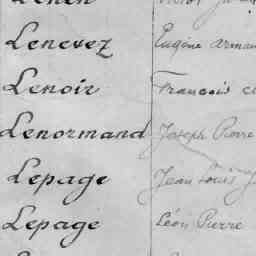 Lenevez Eugène
Lenoir François
Lenormand Joseph Pierre
Lepage Jean Louis
Lepage Léon Pierre